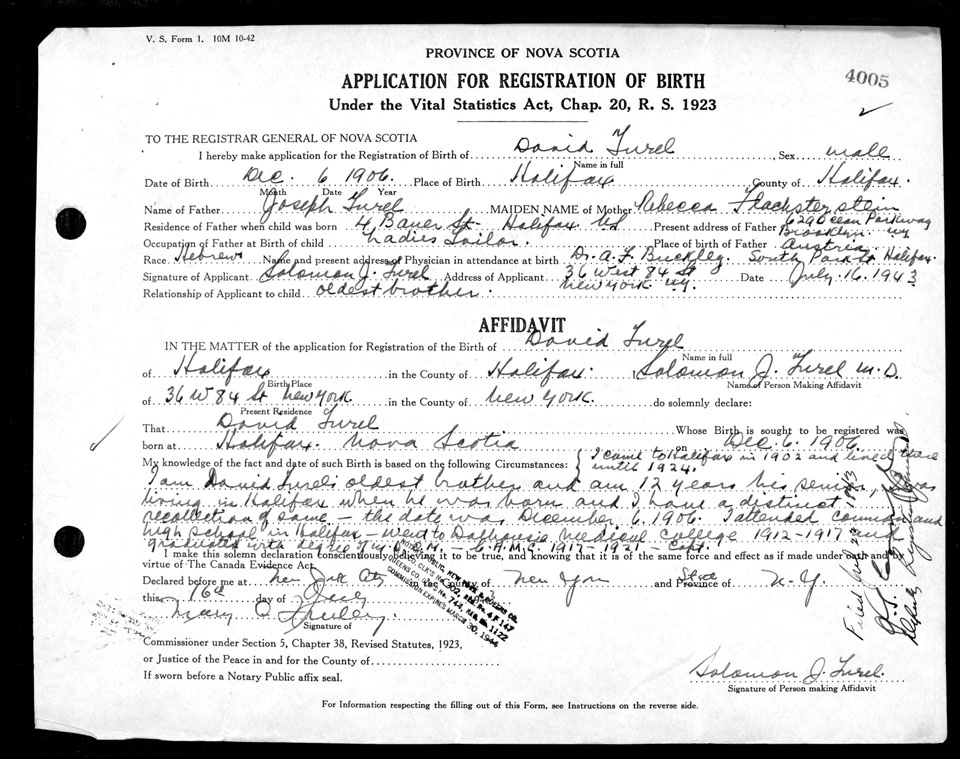 V. S. Form 1. 10M 10-42
PROVINCE OF NOVA SCOTIA
4005
APPLICATION FOR REGISTRATION OF BIRTH
Under the Vital Statistics Act, Chap. 20, R. S. 1923
TO THE REGISTRAR GENERAL OF NOVA SCOTIA
I hereby make application for the Registration of Birth of David Turel Sex male
Name in full
Date of Birth Dec. 6 1906. Place of Birth Halifax County of Halifax.
Month Date Year
Name of Father Joseph Turel MAIDEN NAME of Mother Rebecca
Residence of Father when child was born 4 Bauer St. Halifax NS Present address of Father 629 Ocean Parkway Brooklyn NY
Occupation of Father at Birth of child Ladies Tailor. Place of birth of Father Austria
Race Hebrew Name and present address of Physician in attendance at birth Dr. A. F. Buckley. South Park St Halifax
Signature of Applicant Solomon J. Turel Address of Applicant 36 West 84 St New York NY. Date July 16 1943
Relationship of Applicant to child oldest brother.
AFFIDAVIT
IN THE MATTER of the application for Registration of the Birth of David Turel
Name in full
of Halifax in the County of Halifax. Solomon J. Turel M.D.
Birth Place Name of Person Making Affidavit
of 36 W 84 St New York in the County of New York. do solemnly declare:
Present Residence of
That David Turel Whose Birth is sought to be registered was
born at Halifax. Nova Scotia on Dec. 6. 1906
My knowledge of the fact and date of such Birth is based on the following Circumstances: I came to Halifax in 1902 and lived there until 1924.
I am David Turel's oldest brother and am 12 years his senior, I was
living in Halifax when he was born and I have a distinct
recollection of same - the date was December 6. 1906. I attended common and
high school in Halifax - went to Dalhousie Medical College 1912-1917 and
graduated with degree of M.D.C.M. - C.A.M.C. 1917-1921 - Capt.
I make this solemn declaration conscientiously believing it to be true, and knowing that it is of the same force and effect as if made under oath and by
virtue of The Canada Evidence Act.
Declared before me at New York City County of New York and Province of State N-Y
this 16th day of July
Mary C.
Signature of
COMMISSION EXPIRES MARCH 30, 1944
Commissioner under Section 5, Chapter 38, Revised Statutes, 1923,
or Justice of the Peace in and for the County of
If sworn before a Notary Public affix seal.
Solomon J. Turel.
Signature of Person making Affidavit
For Information respecting the filling out of this Form, see Instructions on the reverse side.
Filed July 23 1943
Deputy Registrar General